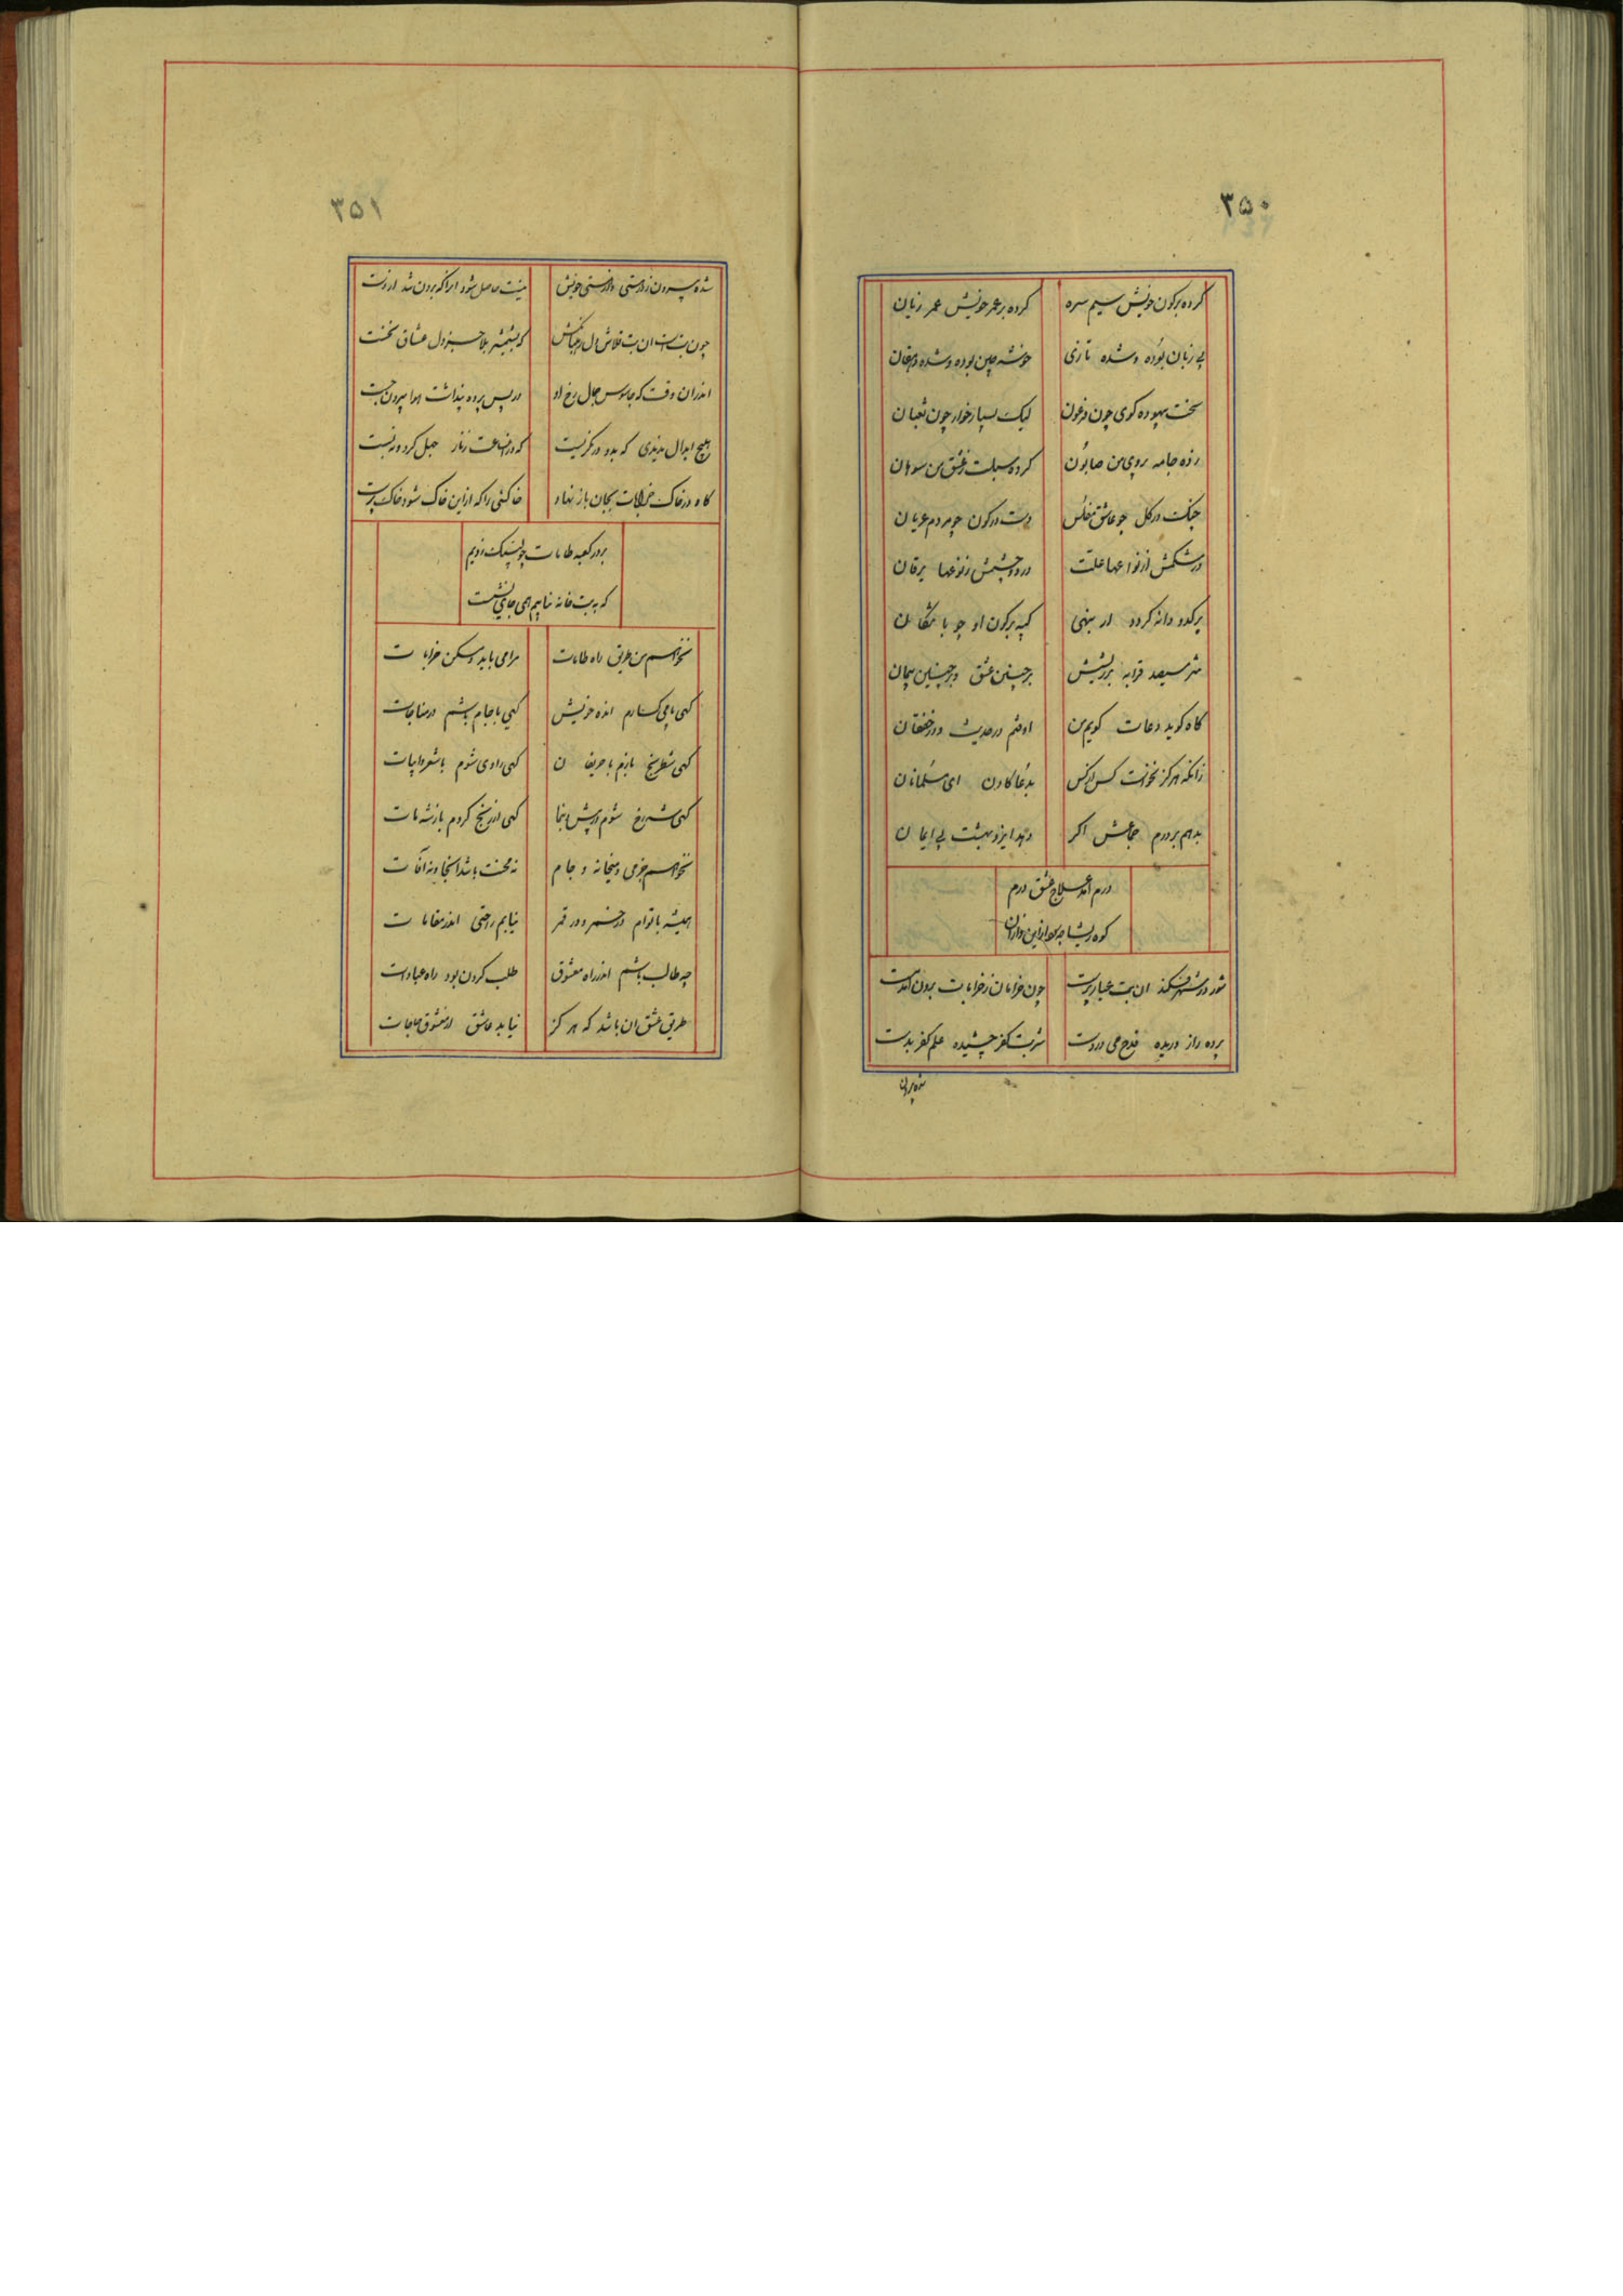 ۳۵۰
کرده بر کون خویش سیم سره کرده بر عمر خویش عمر زیان
بی زبان بوده و شده تازی خوشه چین بوده و شده دهقان
سخت بیهوده کوی چون فرعون لیک بسیار خوار چون ثعبان
زده جامه بروی من صابون کرده سبلت ز عشق من سوهان
چنکت در کل چو عاشق مفلس دست در کون چو مردم عریان
در شکمش از نوعها علت در دو چشمش ز نوعها یرقان
پر کدو دانه کردد ار بینی کپه بر کون او چو باتنکان
تیز سیصد قرابه بر ریشش بر چنین عشق و بر چنین پیمان
کاه کوید دعات کویم من اوفتم در حدیث و در خفقان
زانکه هرکز نخواست کس از کس بدعا کادن ای مسلمانان
بدهم بر درم جماعش اکر دهد ایزد بهشت بی ایمان
درم آمد علاج عشق درم
کوه ریشا چه سود ازین و ازان
شور در شهر فکند آن بت عیار پرست چون خرامان ز خرابات برون آمد مست
پرده راز دریده قدح می در دست شربت کفر چشیده علم کفر بدست
شده بیرون
۳۵۱
شده بیرون ز در نیستی از هستی خویش نیست حاصل شود آنرا که برون شد از هست
چون بت است آن بت قلاش دل رهبانکیش که بشمشیر جفا جز دل عشاق نخست
اندر آن وقت که جاسوس جمال رخ او در پس پرده پنداشت هوا بیرون جست
هیچ ابدال ندیدی که بدو در نکریست که در آنساعت زنار چهل کرد نبست
کاه در خاک خرابات بجان باز نهاد خاکئی را که ازین خاک شود خاک پرست
بر در کعبه طامات چه لبیک زنیم
که به بت خانه نیابیم همی جای نشست
نخواهم من طریق و راه طامات مرا می باید و مسکن خرابات
کهی با می کسارم انده خویش کهی با جام باشم در مناجات
کهی شطرنج بازم با حریفان کهی راوی شوم با شعر و ابیات
کهی شه رخ شوم در پیش اینها کهی از رنج کردم باز شه مات
نخواهم جز می و میخانه و جام نه محنت باشد آنجا و نه آفات
همیشه با توام در خمر و در قمر نیابم راحتی اندر مقامات
چه طالب باشم اندر راه معشوق طلب کردن بود راه عبادات
طریق عشق آن باشد که هرکز نیابد عاشق از معشوق حاجات